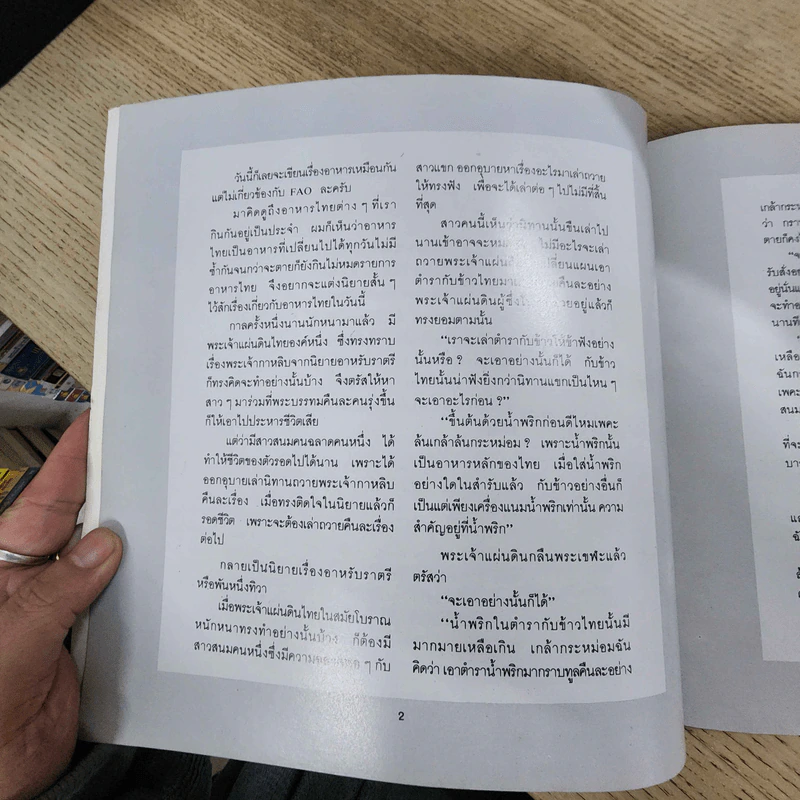 วันนี้ก็เลยจะเขียนเรื่องอาหารเหมือนกัน
แต่ไม่เกี่ยวข้องกับ FAO ละครับ
มาคิดดูถึงอาหารไทยต่าง ๆ ที่เรา
กินกันอยู่เป็นประจำ ผมก็เห็นว่าอาหาร
ไทยเป็นอาหารที่เปลี่ยนไปได้ทุกวันไม่มี
ซ้ำกันจนกว่าจะตายก็ยังกินไม่หมดรายการ
อาหารไทย จึงอยากจะแต่งนิยายสั้น ๆ
ไว้สักเรื่องเกี่ยวกับอาหารไทยในวันนี้
กาลครั้งหนึ่งนานนักหนามาแล้ว มี
พระเจ้าแผ่นดินไทยองค์หนึ่ง ซึ่งทรงทราบ
เรื่องพระเจ้ากาหลิบจากนิยายอาหรับราตรี
ก็ทรงคิดจะทำอย่างนั้นบ้าง จึงตรัสให้หา
สาว ๆ มาร่วมที่พระบรรทมคืนละคนรุ่งขึ้น
ก็ให้เอาไปประหารชีวิตเสีย
แต่ว่ามีสาวสนมคนฉลาดคนหนึ่ง ได้
ทำให้ชีวิตของตัวรอดไปได้นาน เพราะได้
ออกอุบายเล่านิทานถวายพระเจ้ากาหลิบ
คืนละเรื่อง เมื่อทรงติดใจในนิยายแล้วก็
รอดชีวิต เพราะจะต้องเล่าถวายคืนละเรื่อง
ต่อไป
กลายเป็นนิยายเรื่องอาหรับราตรี
หรือพันหนึ่งทิวา
เมื่อพระเจ้าแผ่นดินไทยในสมัยโบราณ
หนักหนาทรงทำอย่างนั้นบ้าง ก็ต้องมี
สาวสนมคนหนึ่งซึ่งมีความ ๆ กับ
สาวแขก ออกอุบายหาเรื่องอะไรมาเล่าถวาย
ให้ทรงฟัง เพื่อจะได้เล่าต่อ ๆ ไปไม่มีที่สิ้น
ที่สุด
สาวคนนี้เห็นว่านิทานนั้นขืนเล่าไป
นานเข้าอาจจะหมด ไม่มีอะไรจะเล่า
ถวายพระเจ้าแผ่นดิน เปลี่ยนแผนเอา
ตำรากับข้าวไทยมา คืนละอย่าง
พระเจ้าแผ่นดินผู้ซึ่ง อยู่แล้วก็
ทรงยอมตามนั้น
“เราจะเล่าตำรากับข้าวให้ข้าฟังอย่าง
นั้นหรือ ? จะเอาอย่างนั้นก็ได้ กับข้าว
ไทยนั้นน่าฟังยิ่งกว่านิทานแขกเป็นไหน ๆ
จะเอาอะไรก่อน ?”
“ขึ้นต้นด้วยน้ำพริกก่อนดีไหมเพคะ
ล้นเกล้าล้นกระหม่อม ? เพราะน้ำพริกนั้น
เป็นอาหารหลักของไทย เมื่อใส่น้ำพริก
อย่างใดในสำรับแล้ว กับข้าวอย่างอื่นก็
เป็นแต่เพียงเครื่องแนมน้ำพริกเท่านั้น ความ
สำคัญอยู่ที่น้ำพริก”
พระเจ้าแผ่นดินกลืนพระเขฬะแล้ว
ตรัสว่า
“จะเอาอย่างนั้นก็ได้”
“น้ำพริกในตำรากับข้าวไทยนั้นมี
มากมายเหลือเกิน เกล้ากระหม่อมฉัน
คิดว่า เอาตำราน้ำพริกมากราบทูลคืนละอย่าง
2